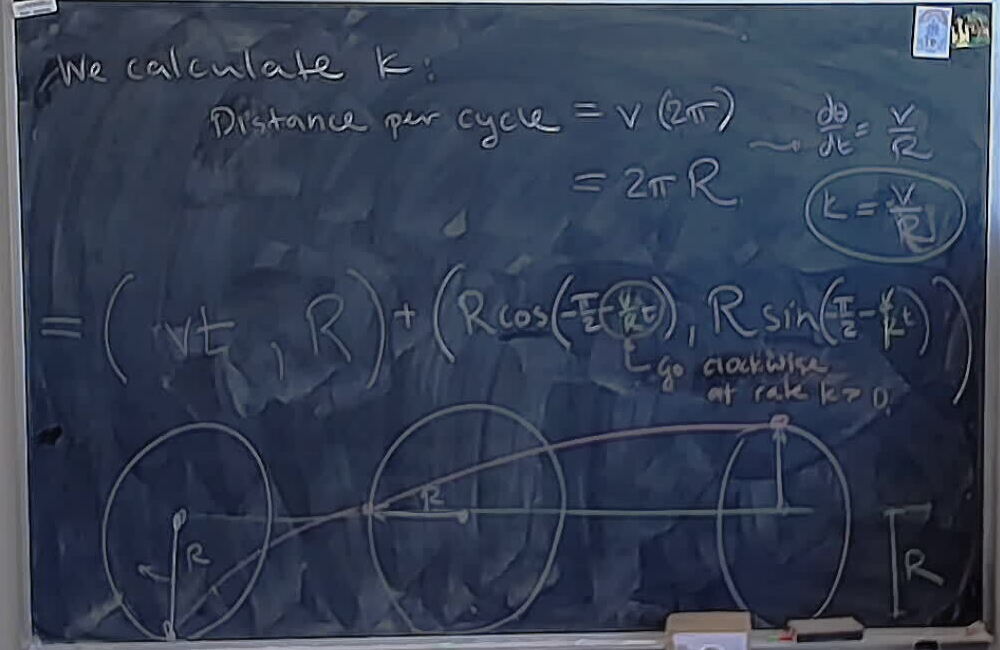 We calculate k:
Distance per cycle = v (2π)
= 2π R
dθ/dt = v/R
k = v/R
= (vt, R) + (R cos(-π/2 - v/R t), R sin(-π/2 - v/R t))
go clockwise
at rate k > 0.
R
R
R